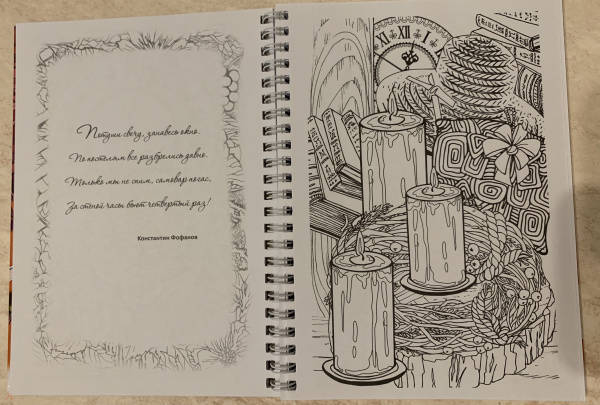 Потуши свечу, занавесь окно.
По постелям все разбрелись давно.
Только мы не спим, самовар погас,
За стеной часы бьют четвертый раз!
Константин Фофанов
XI XII I